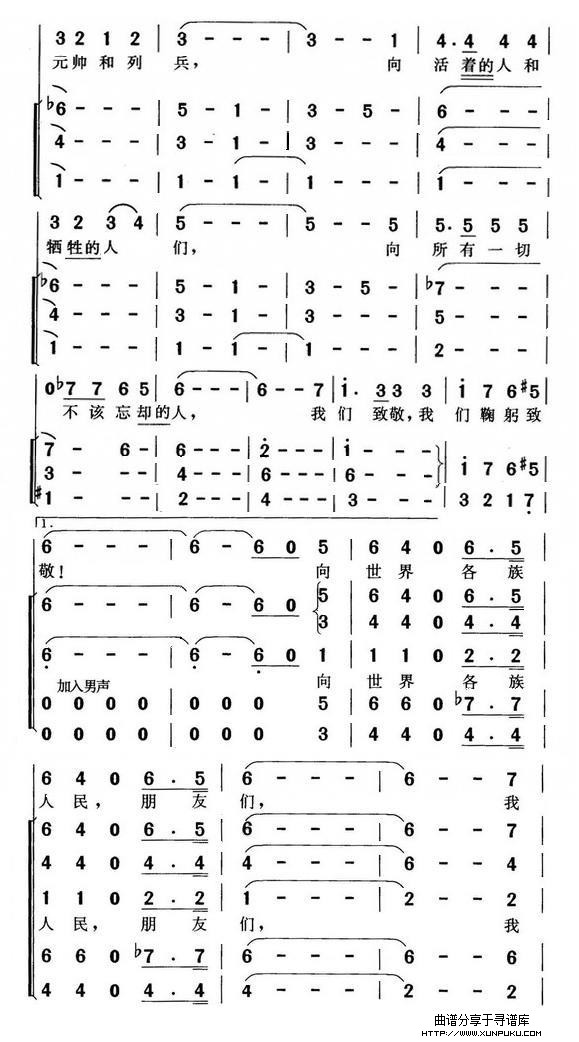 3 2 1 2 | 3 - - - | 3 - - 1 | 4 . 4 4 4 |
元帅和列 兵， 向 活着的人和
♭6 - - - | 5 - 1 - | 3 - 5 - | 6 - - - |
4 - - - | 3 - 1 - | 3 - - - | 4 - - - |
1 - - - | 1 - 1 - | 1 - - - | 1 - - - |
3 2 3 4 | 5 - - - | 5 - - 5 | 5. 5 5 5 |
牺牲的人 们， 向 所有一切
♭6 - - - | 5 - 1 - | 3 - 5 - | ♭7 - - - |
4 - - - | 3 - 1 - | 3 - - - | 5 - - - |
1 - - - | 1 - 1 - | 1 - - - | 2 - - - |
0 ♭7 7 6 5 | 6 - - - | 6 - - 7 | i . 3 3 3 | i 7 6 #5 |
不该忘却的人， 我们 致敬，我 们鞠躬致
7 - 6 - | 6 - - - | 2 - - - | i - - - | i 7 6 #5 |
3 - - - | 4 - - - | 6 - - - | 6 - - - |
#1 - - - | 2 - - - | 4 - - - | 3 - - - | 3 2 1 7 |
1.
6 - - - | 6 - 6 0 5 | 6 4 0 6 . 5 |
敬！ 向 世界 各族
6 - - - | 6 - 6 0 5 | 6 4 0 6 . 5 |
3 | 4 4 0 4 . 4 |
6 - - - | 6 - 6 0 1 | 1 1 0 2 . 2 |
加入男声 向 世界 各族
0 0 0 0 | 0 0 0 5 | 6 6 0 ♭7 . 7 |
0 0 0 0 | 0 0 0 3 | 4 4 0 4 . 4 |
6 4 0 6 . 5 | 6 - - - | 6 - - 7 |
人民， 朋友 们， 我
6 4 0 6 . 5 | 6 - - - | 6 - - 7 |
4 4 0 4 . 4 | 4 - - - | 6 - - 4 |
1 1 0 2 . 2 | 1 - - - | 2 - - 2 |
人民， 朋友 们， 我
6 6 0 ♭7 . 7 | 6 - - - | 6 - - 6 |
4 4 0 4 . 4 | 4 - - - | 2 - - 2 |
曲谱分享于寻谱库
HTTP://WWW.XUNPUKU.COM